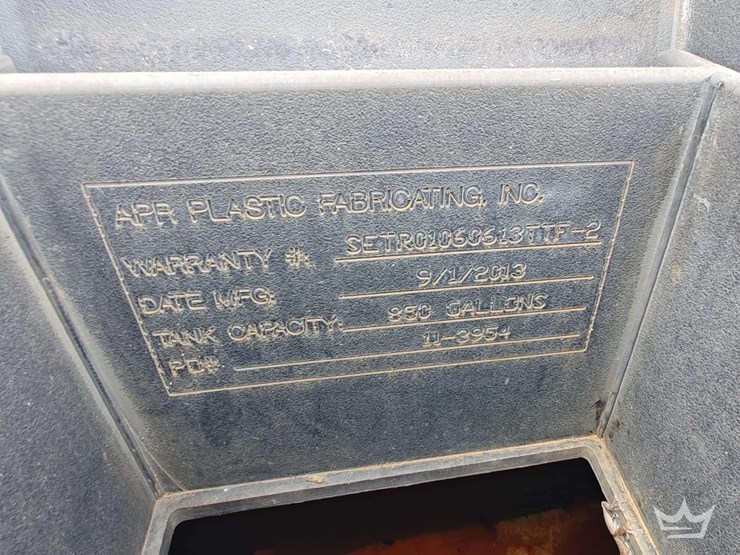 APR PLASTIC FABRICATING, INC.
WARRANTY #: SETR01060613TTF-2
DATE MFG: 9/1/2013
TANK CAPACITY: 850 GALLONS
PO# 11-3954